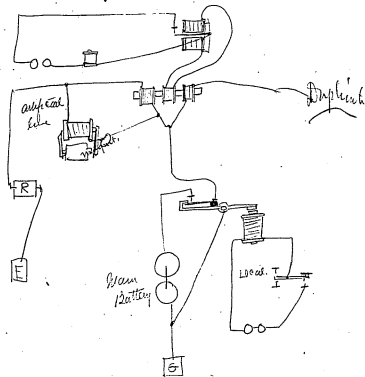 Duplicate
artificial
line
R
E
Main
Battery
Local.
G